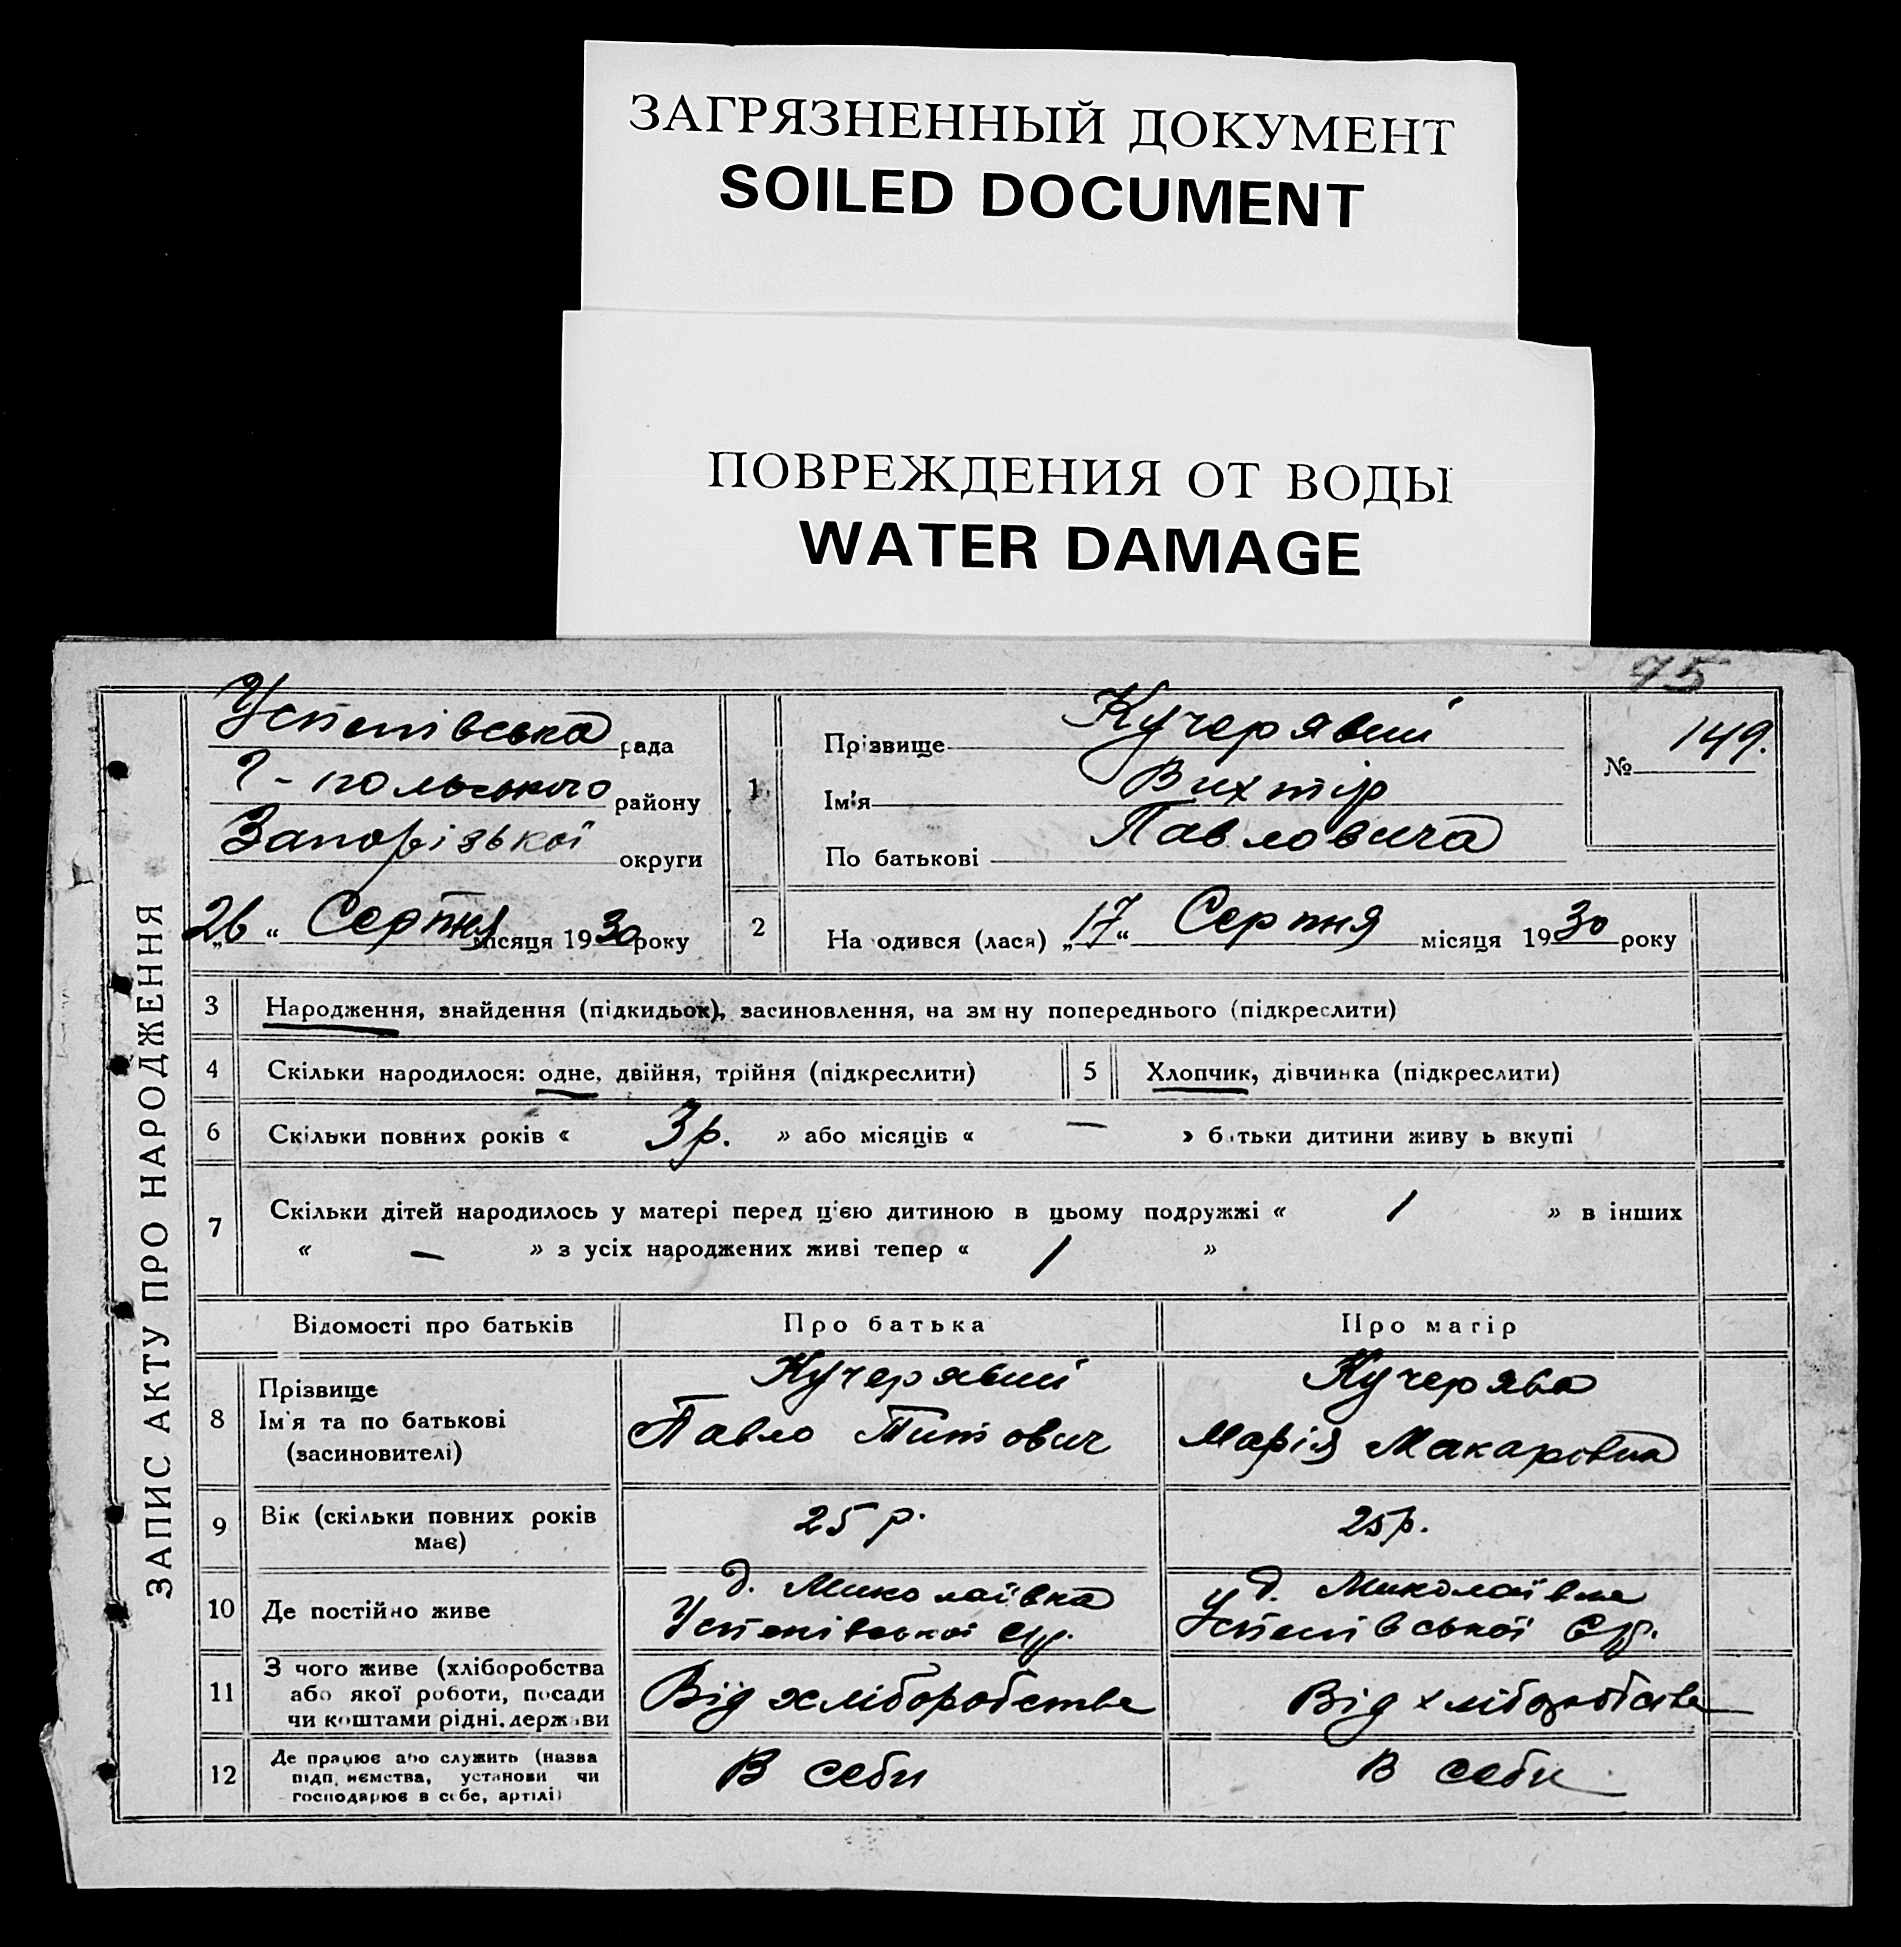 ЗАГРЯЗНЕННЫЙ ДОКУМЕНТ
SOILED DOCUMENT
ПОВРЕЖДЕНИЯ ОТ ВОДЫ
WATER DAMAGE
ЗАПИС АКТУ ПРО НАРОДЖЕННЯ
Успенівська рада
Г-польського району
Запорізької округи
„26“ Серпня місяця 1930 року
1
Прізвище Кучерявий
Ім'я Вихтір
По батькові Павловича
№ 149.
2 На одився (лася) „17“ Серпня місяця 1930 року
3 Народження, знайдення (підкидьок), засиновлення, на зм ну попереднього (підкреслити)
4 Скільки народилося: одне, двійня, трійня (підкреслити) 5 Хлопчик, дівчинка (підкреслити)
6 Скільки повних років « 3 р. » або місяців « — » б тьки дитини живу ь вкупі
7 Скільки дітей народилось у матері перед ц'єю дитиною в цьому подружжі « 1 » в інших
« — » з усіх народжених живі тепер « 1 »
Відомості про батьків Про батька Про матір
8 Прізвище Кучерявий Кучерява
Ім'я та по батькові Павло Титович Марія Макаровна
(засиновителі)
9 Вік (скільки повних років має) 25 р. 25 р.
10 Де постійно живе д. Миколаївка д. Миколаївка
Успенівської с/р. Успенівської с/р.
11 З чого живе (хліборобства
або якої роботи, посади Від хліборобства Від хліборобства
чи коштами рідні. держ ви
12 Де працює або служить (назва
підп. ємства, установи чи В себи В себи
господарює в себе, артілі)